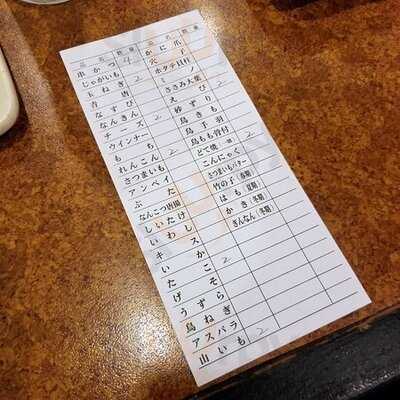 品名 数量 品名 数量
串かつ 4 かに爪
じゃがいも 穴子
玉ねぎ 2 ホタテ貝柱
青唐 ミノ
なすび 2 ささみ大葉
なんきん えび 2
チーズ 2 砂ずり
ウインナー 鳥きも
もち 鳥手羽
れんこん 2 鳥もも骨付
さつまいも どて焼 2
アンペイ こんにゃく
ぶた さつまいもバター
なんこつ唐揚 竹の子(春期)
しいたけ はも(夏期)
いわし かき(冬期)
キス ぎんなん(冬期)
いか
たこ 2
げそ
うずら
鳥ねぎ
アスパラ
山いも 2